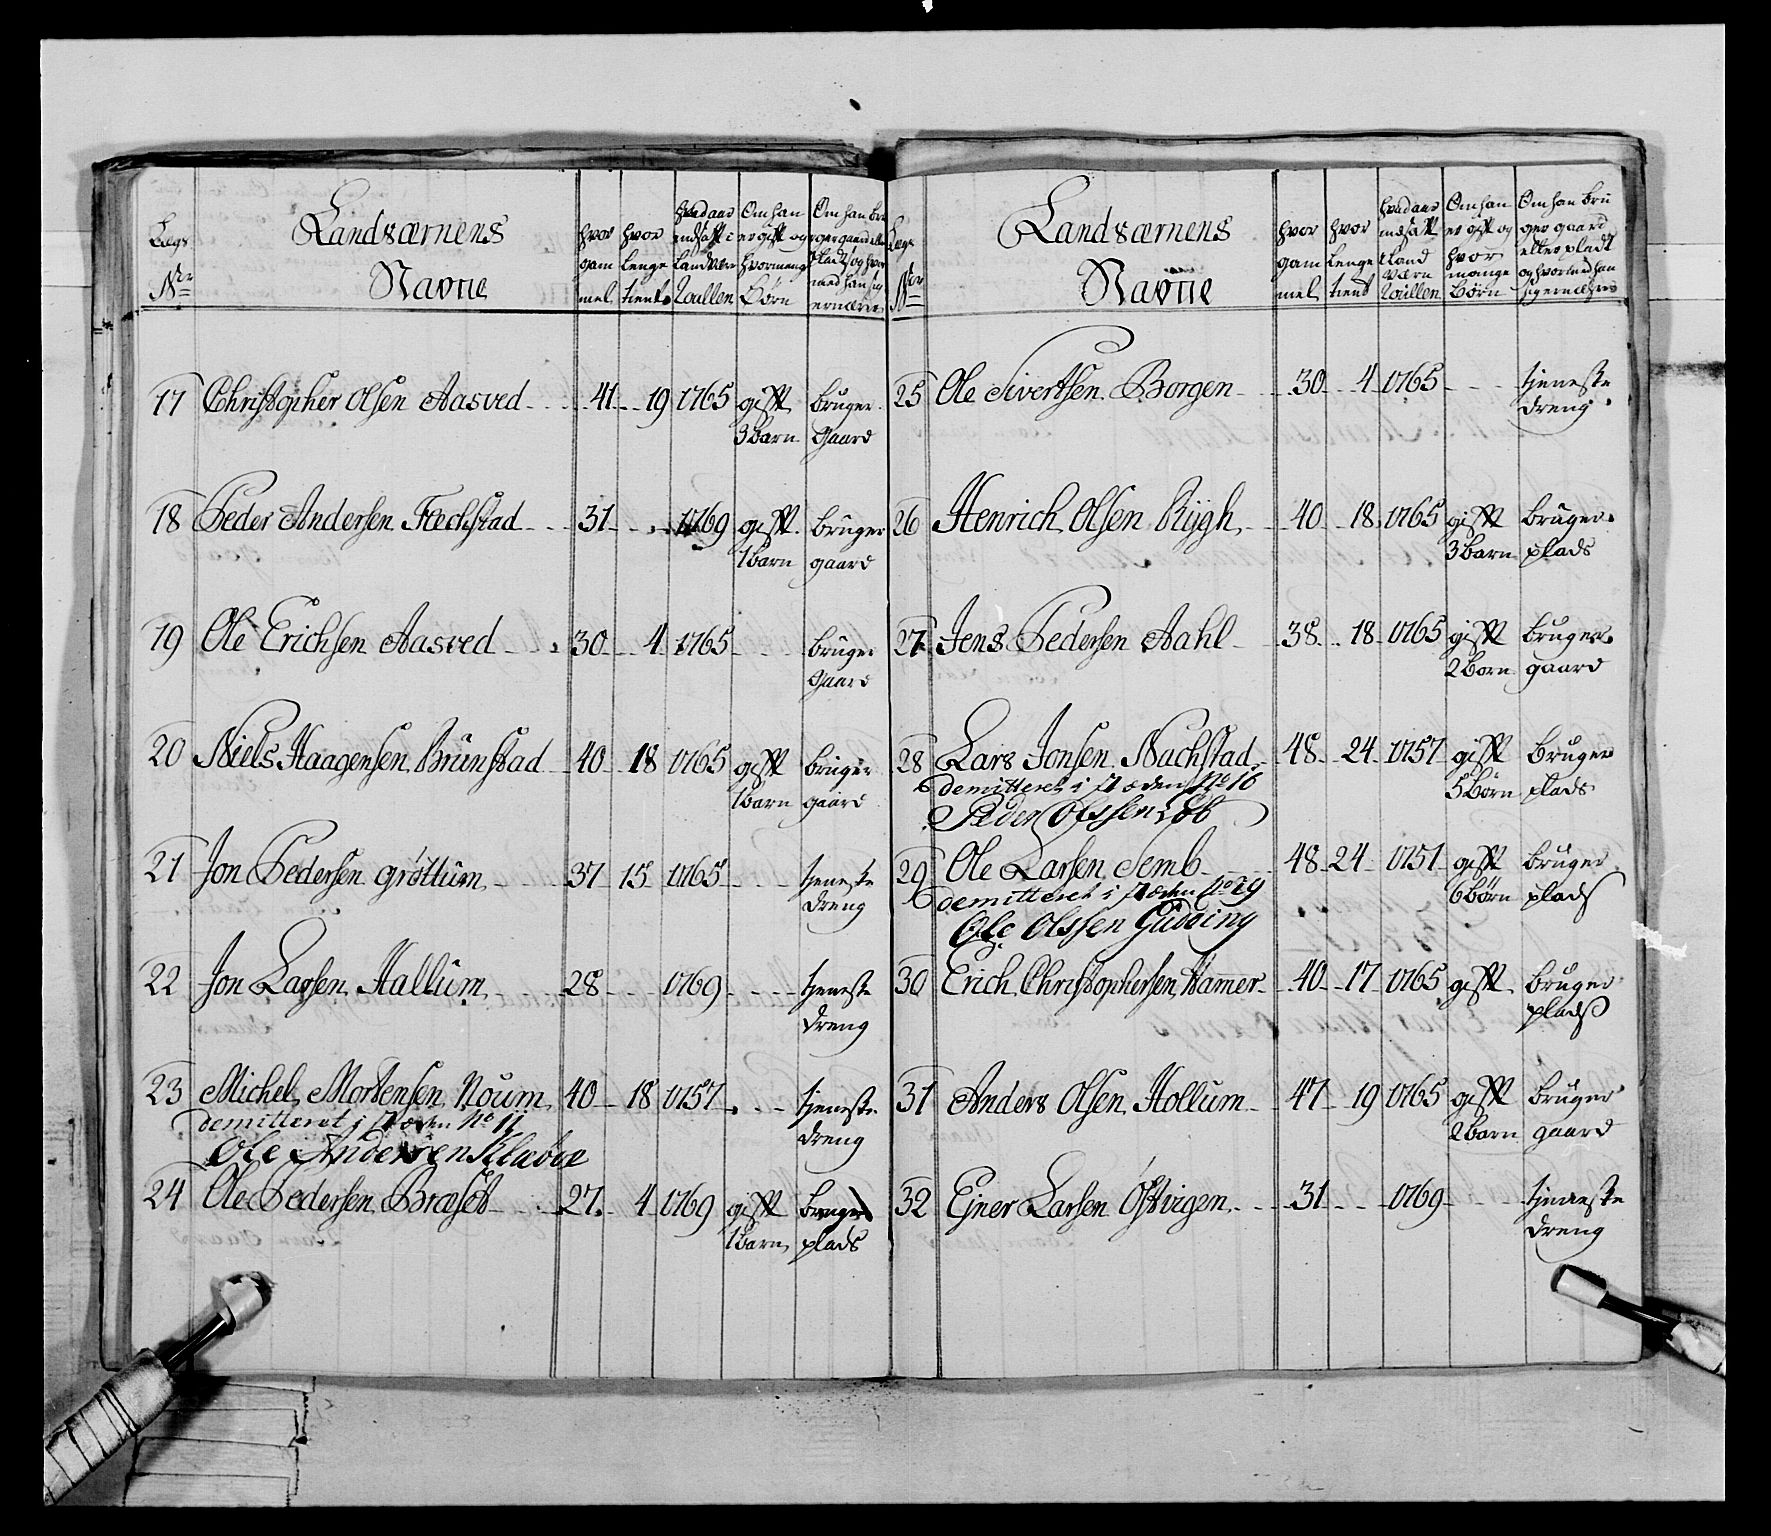 Legs
Nr
Landværnens
Navne
hvor
gam
mel
hvor
lenge
tient
hvad aar
indsatt i
Landværn
Roullen
Om han
er gift og
hvormeng
Børn
Om han bru
ger gaard eller
Plads og hvor
med han sig
ernærer
17 Christopher Olsen Aasved 41 19 1765 gift bruger
3 barn Gaard
18 Peder Andersen Fleckstad 31 1769 gift bruger
1 barn gaard
19 Ole Erichsen Aasved 30 4 1765 bruger
Gaard
20 Niels Haagensen Brunstad 40 18 1765 gift bruger
1 barn gaard
21 Jon Pedersen Grøttum 37 15 1765 tjeneste
dreng
22 Jon Larsen Hallum 28 1769 tjeneste
dreng
23 Michel Mortensen Noum 40 18 1757 tjeneste
demitteret i stæden No 11 dreng
Ole Andersen Klæve
24 Ole Pedersen Bræsøt 27 4 1769 gift bruger
1 barn plads
Legs
Nor
Landværnens
Navne
hvor
gam
mel
hvor
lenge
tient
hvad aar
indsatt
i Land
værn
Roullen
Om han
er gift og
hvor
mange
Børn
Om han bru
ger gaard
eller plads
og hvormed han
sig ernæhrer
25 Ole Sivertsen Borgen 30 4 1765 tjeneste
dreng
26 Henrich Olsen Rygh 40 18 1765 gift bruger
3 barn plads
27 Jens Pedersen Aahl 38 18 1765 gift bruger
2 born gaard
28 Lars Jonsen Nachstad 48 24 1757 gift bruger
demitteret i stæden No 16 5 børn plads
Peder Olssen Løb
29 Ole Larsen Semb 48 24 1751 gift bruger
demitteret i stæden No 29 6 børn plads
Ole Olssen Gudding
30 Erich Christophersen Hammer 40 17 1765 gift bruger
plads
31 Anders Olsen Hollum 47 19 1765 gift bruger
2 barn gaard
32 Ejner Larsen Østvigen 31 1769 tjeneste
dreng